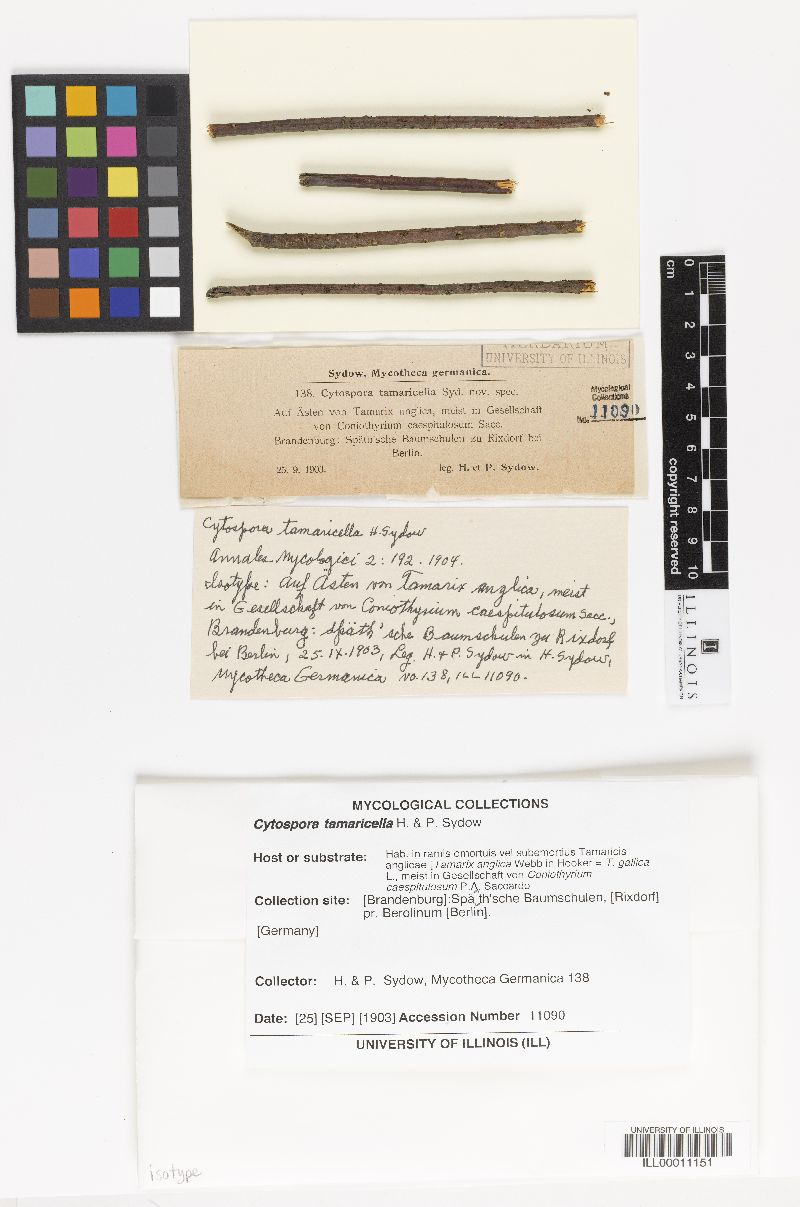 HERBARIUM
UNIVERSITY OF ILLINOIS
Sydow, Mycotheca germanica.
138. Cytospora tamaricella Syd. nov. spec.
Auf Ästen von Tamarix anglica, meist in Gesellschaft
von Coniothyrium caespitulosum Sacc.
Brandenburg: Späth'sche Baumschulen zu Rixdorf bei
Berlin.
25. 9. 1903. leg. H. et P. Sydow.
Mycological
Collections
No. 11090
Cytospora tamaricella H. Sydow
Annales Mycologici 2: 192. 1904.
Isotype: Auf Ästen von Tamarix anglica, meist
in Gesellschaft von Coniothyrium caespitulosum Sacc.,
Brandenburg: Späth'sche Baumschulen zu Rixdorf
bei Berlin, 25. IX. 1903, Leg. H. & P. Sydow in H. Sydow,
Mycotheca Germanica no. 138, ILL 11090.
cm
0
1
2
3
4
5
6
7
8
9
10
copyright reserved
ILLINOIS
I
MYCOLOGICAL COLLECTIONS
Cytospora tamaricella H. & P. Sydow
Host or substrate: Hab. in ramis emortuis vel subemortius Tamaricis
anglicae ; Tamarix anglica Webb in Hooker = T. gallica
L., meist in Gesellschaft von Coniothyrium
caespitulosum P.A. Saccardo
Collection site: [Brandenburg]:Späth'sche Baumschulen, [Rixdorf]
pr. Berolinum [Berlin].
[Germany]
Collector: H. & P. Sydow, Mycotheca Germanica 138
Date: [25] [SEP] [1903] Accession Number 11090
UNIVERSITY OF ILLINOIS (ILL)
UNIVERSITY OF ILLINOIS
ILL00011151
isotype